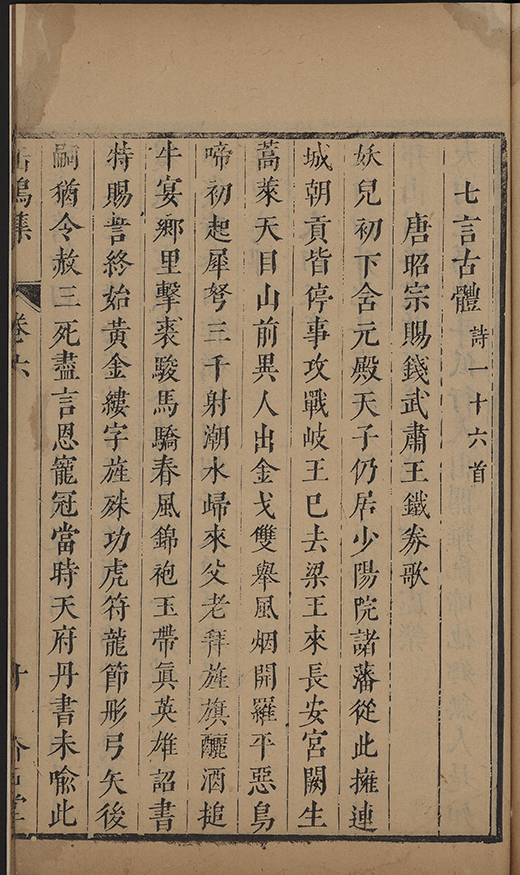 七言古體 詩一十六首
唐昭宗賜錢武肅王鐵券歌
妖兒初下含元殿天子仍居少陽院諸藩從此擁連
城朝貢皆停事攻戰岐王已去梁王來長安宮闕生
蒿萊天目山前異人出金戈雙舉風烟開羅平惡鳥
啼初起犀弩三千射潮水歸來父老拜旌旗釃酒搥
牛宴鄉里擊裘駿馬驕春風錦袍玉帶眞英雄詔書
特賜誓終始黃金縷字旌殊功虎符龍節彤弓矢後
嗣猶令赦三死盡言恩寵冠當時天府丹書未喻此
鳴集 卷六